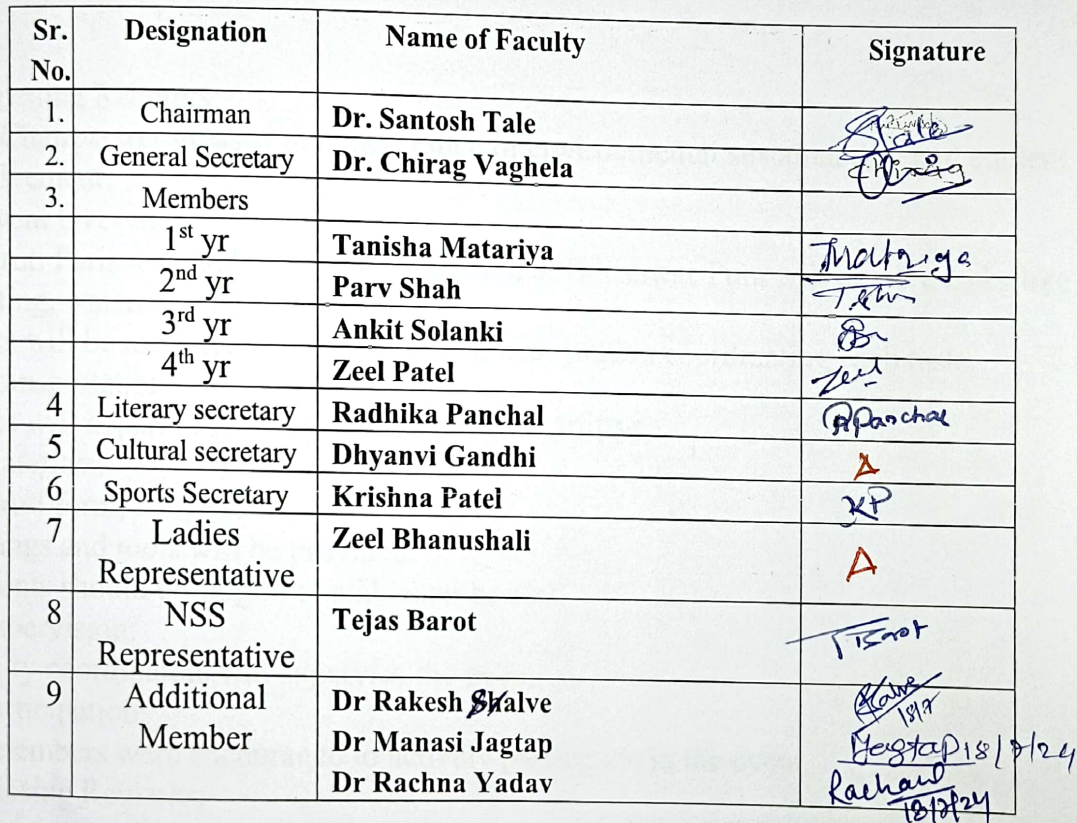 Sr. No. Designation Name of Faculty Signature
1. Chairman Dr. Santosh Tale Stale
2. General Secretary Dr. Chirag Vaghela Chirag
3. Members
1st yr Tanisha Matariya
2nd yr Parv Shah
3rd yr Ankit Solanki
4th yr Zeel Patel Zeel
4 Literary secretary Radhika Panchal RPanchal
5 Cultural secretary Dhyanvi Gandhi A
6 Sports Secretary Krishna Patel KP
7 Ladies Representative Zeel Bhanushali A
8 NSS Representative Tejas Barot TBarot
9 Additional Member Dr Rakesh Kalve 18/7
Dr Manasi Jagtap Jagtap 18/7/24
Dr Rachna Yadav 18/7/24